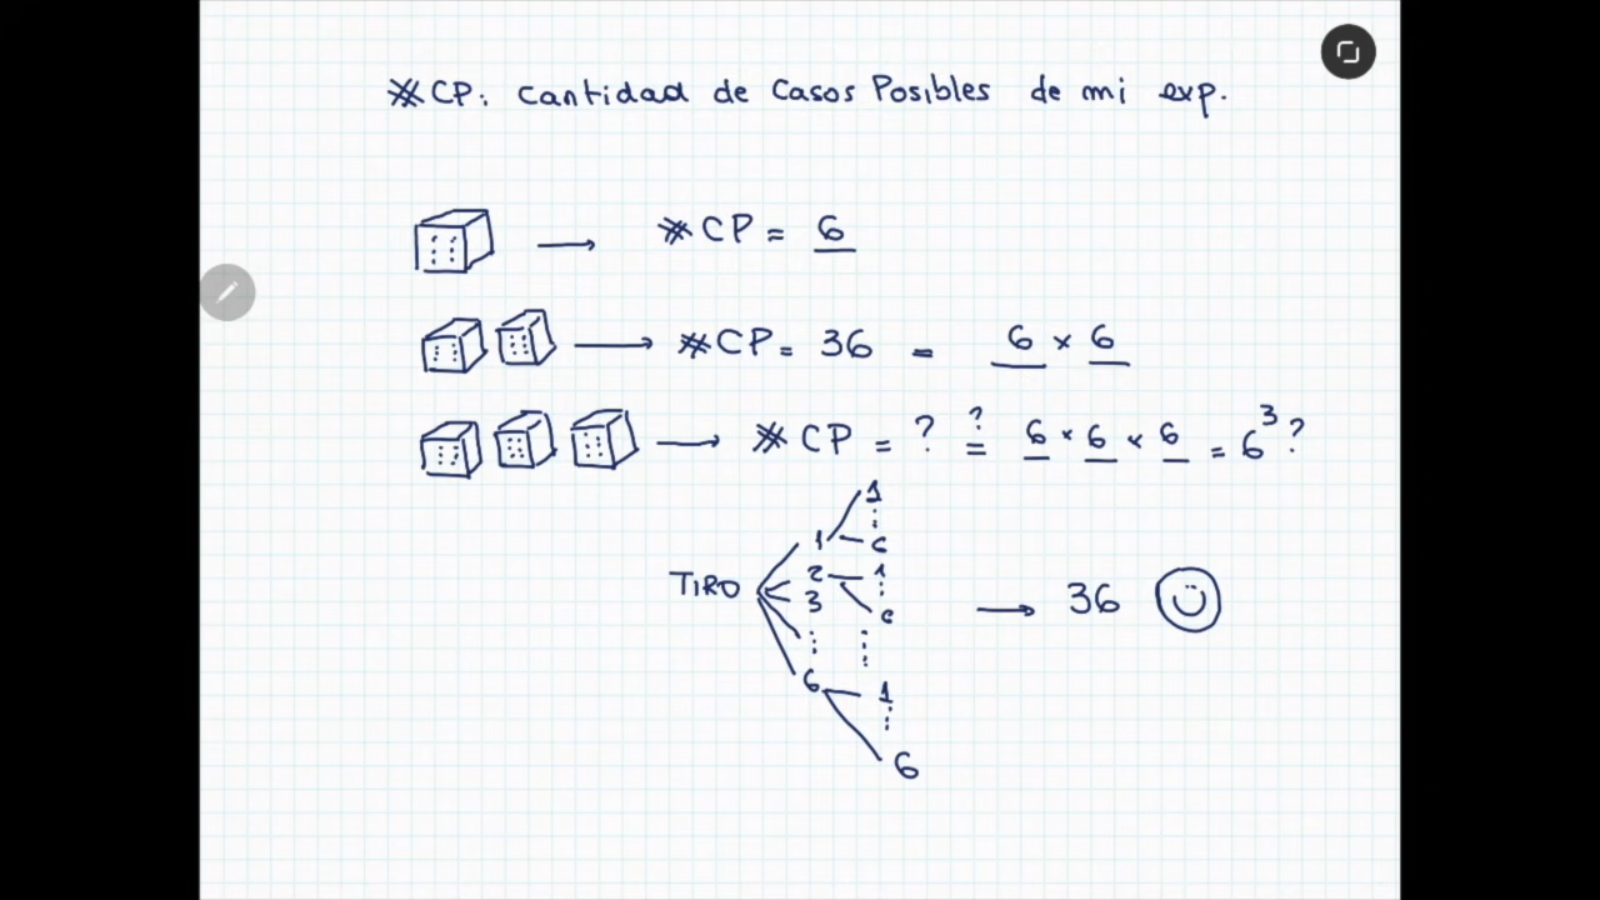 #CP: Cantidad de Casos Posibles de mi exp.
→ #CP = 6
→ #CP = 36 = 6 × 6
→ #CP = ? ≟ 6 × 6 × 6 = 6³?
1
⋮
1 6
TIRO 2 1
3 ⋮
6 → 36
⋮ ⋮
6 1
⋮
6